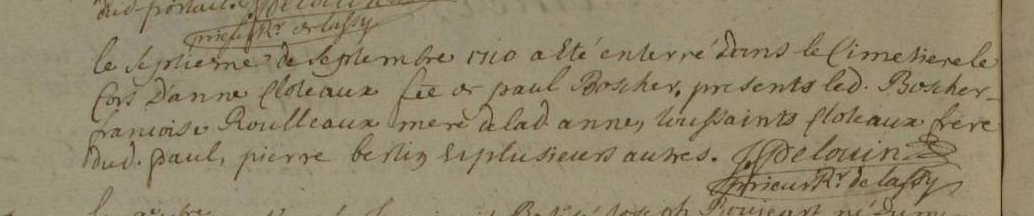 dud. portail. J. Delouin
prieur Rr. de lassy
le septieme de septembre 1710 a été enterré dans le Cimetiere le
Cors D'anne Cloteaux fee de paul Boscher, presents led. Boscher
francoise Roulleaux mere de lad. anne, toussaints Cloteaux frere
dud. paul, pierre bertin & plusieurs autres. J. Delouin
prieur Rr. de lassy